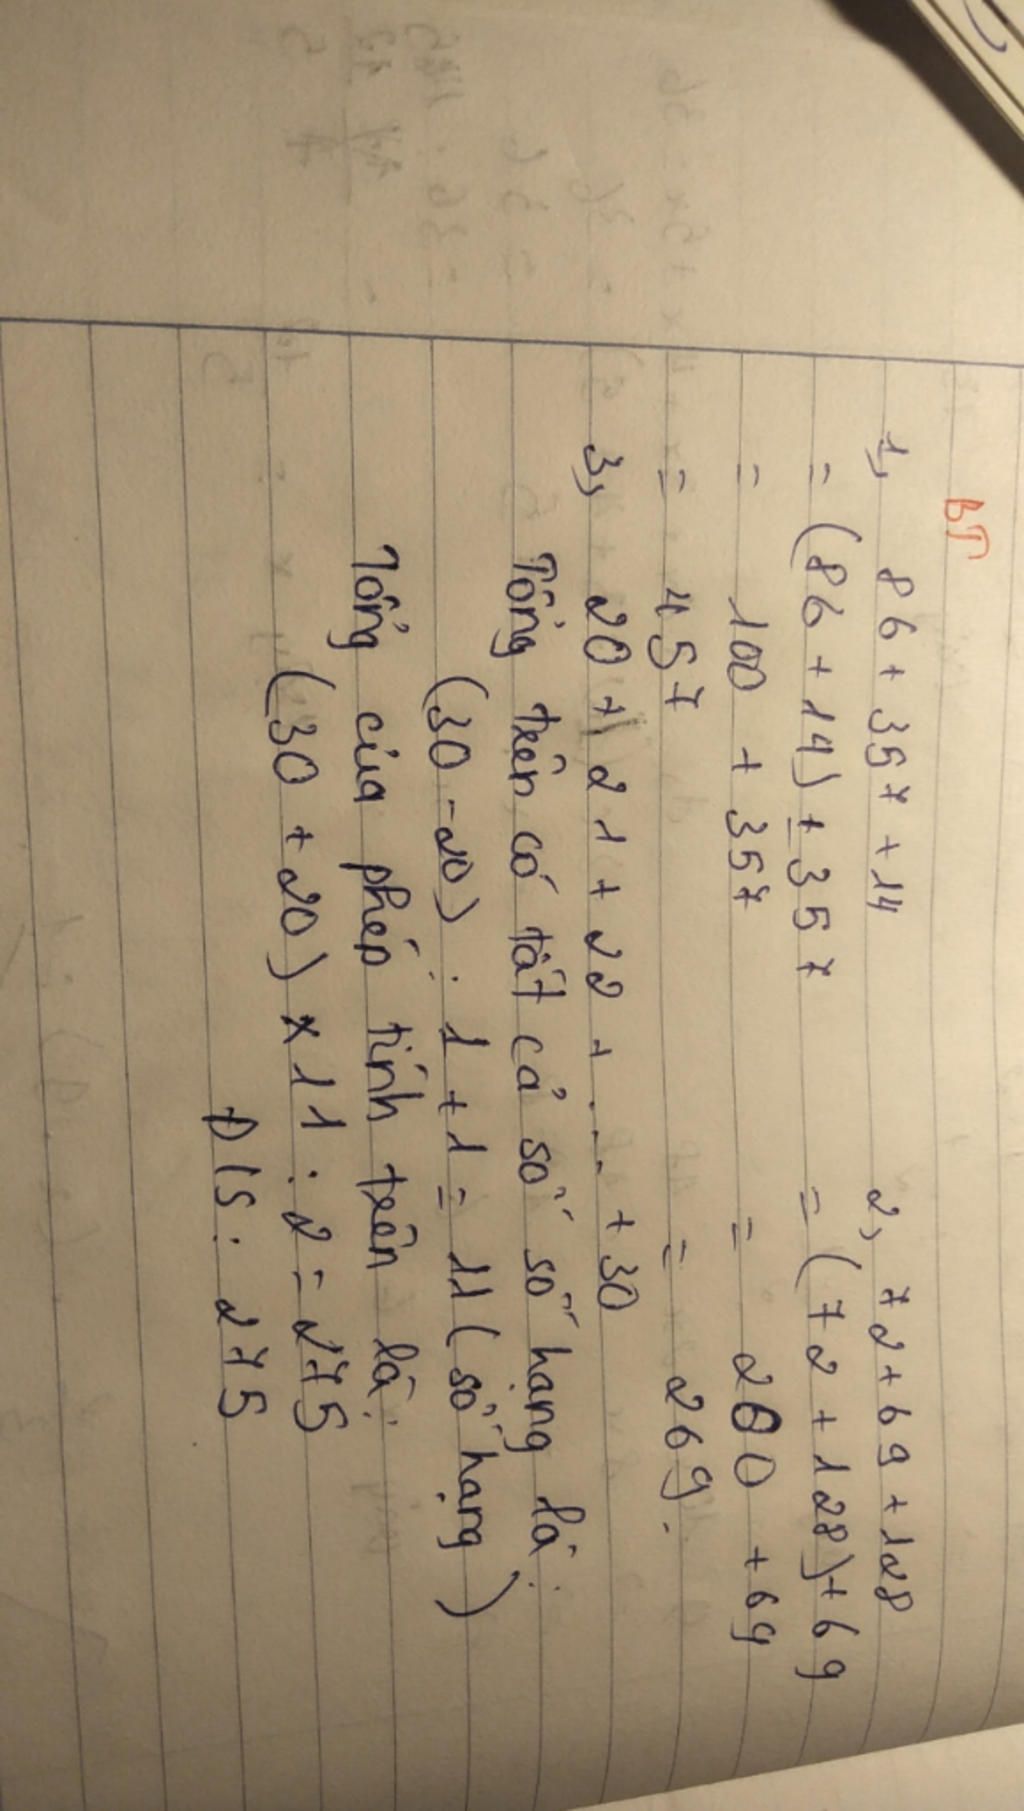 BT
1, 86 + 357 + 14
= (86 + 14) + 357
= 100 + 357
= 457
2, 72 + 69 + 128
= (72 + 128) + 69
= 200 + 69
= 269.
3, 20 + 21 + 22 + ... + 30
Tổng trên có tất cả số số hạng là:
(30 - 20) : 1 + 1 = 11 (số hạng)
Tổng của phép tính trên là:
(30 + 20) x 11 : 2 = 275
Đ/S: 275